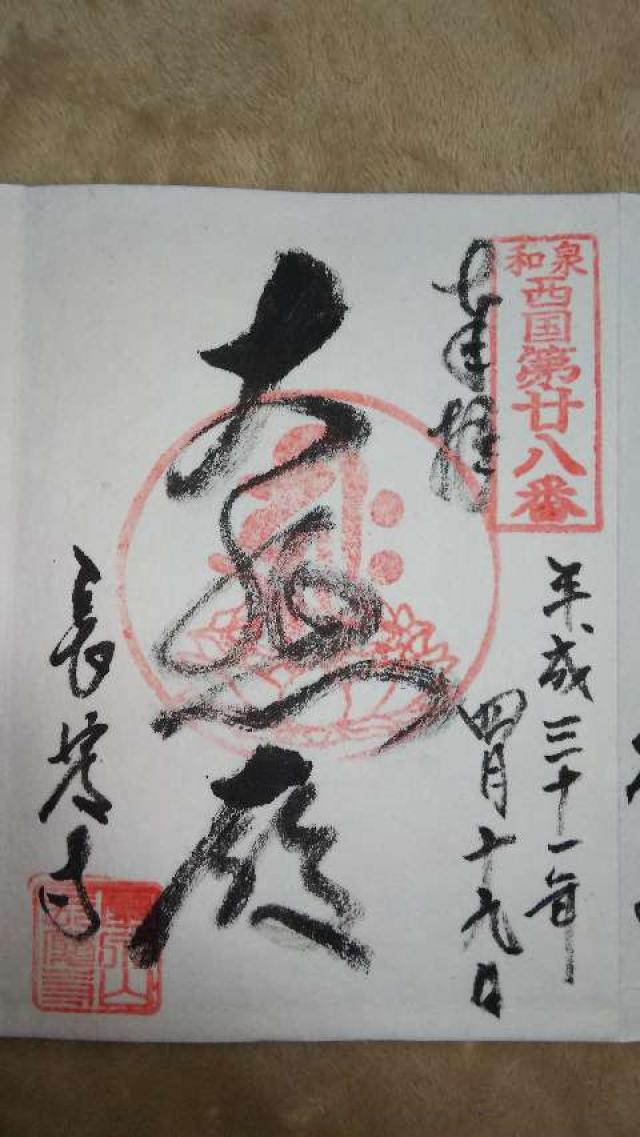 和泉
西国第廿八番
奉拝
平成三十一年
四月十九日
大悲殿